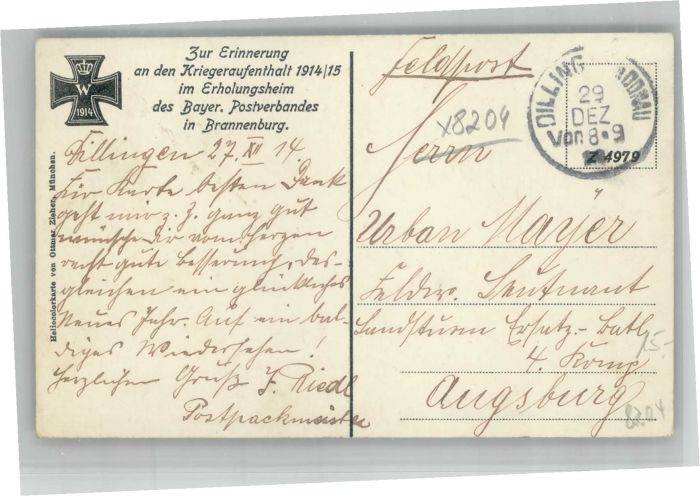 W
1914
Zur Erinnerung
an den Kriegeraufenthalt 1914/15
im Erholungsheim
des Bayer. Postverbandes
in Brannenburg.
Dillingen 27. XII 14.
Für Karte besten Dank
geht mir z. Z. ganz gut
wünsche Dir vom Herzen
recht gute Besserung, des-
gleichen ein glückliches
Neues Jahr. Auf ein bal-
diges Wiedersehen!
Herzlichen Gruß F. Riedl
Postpackmeister
Heliocolorkarte von Ottmar Zieher, München.
Feldpost
x8204
DILLING DONAU
29
DEZ
Vor. 8•9
Z 4979
Herrn
Urban Mayer
Feldw. Leutnant
Landsturm Ersatz.- Batl.
4. Komp
Augsburg
15.-
8204